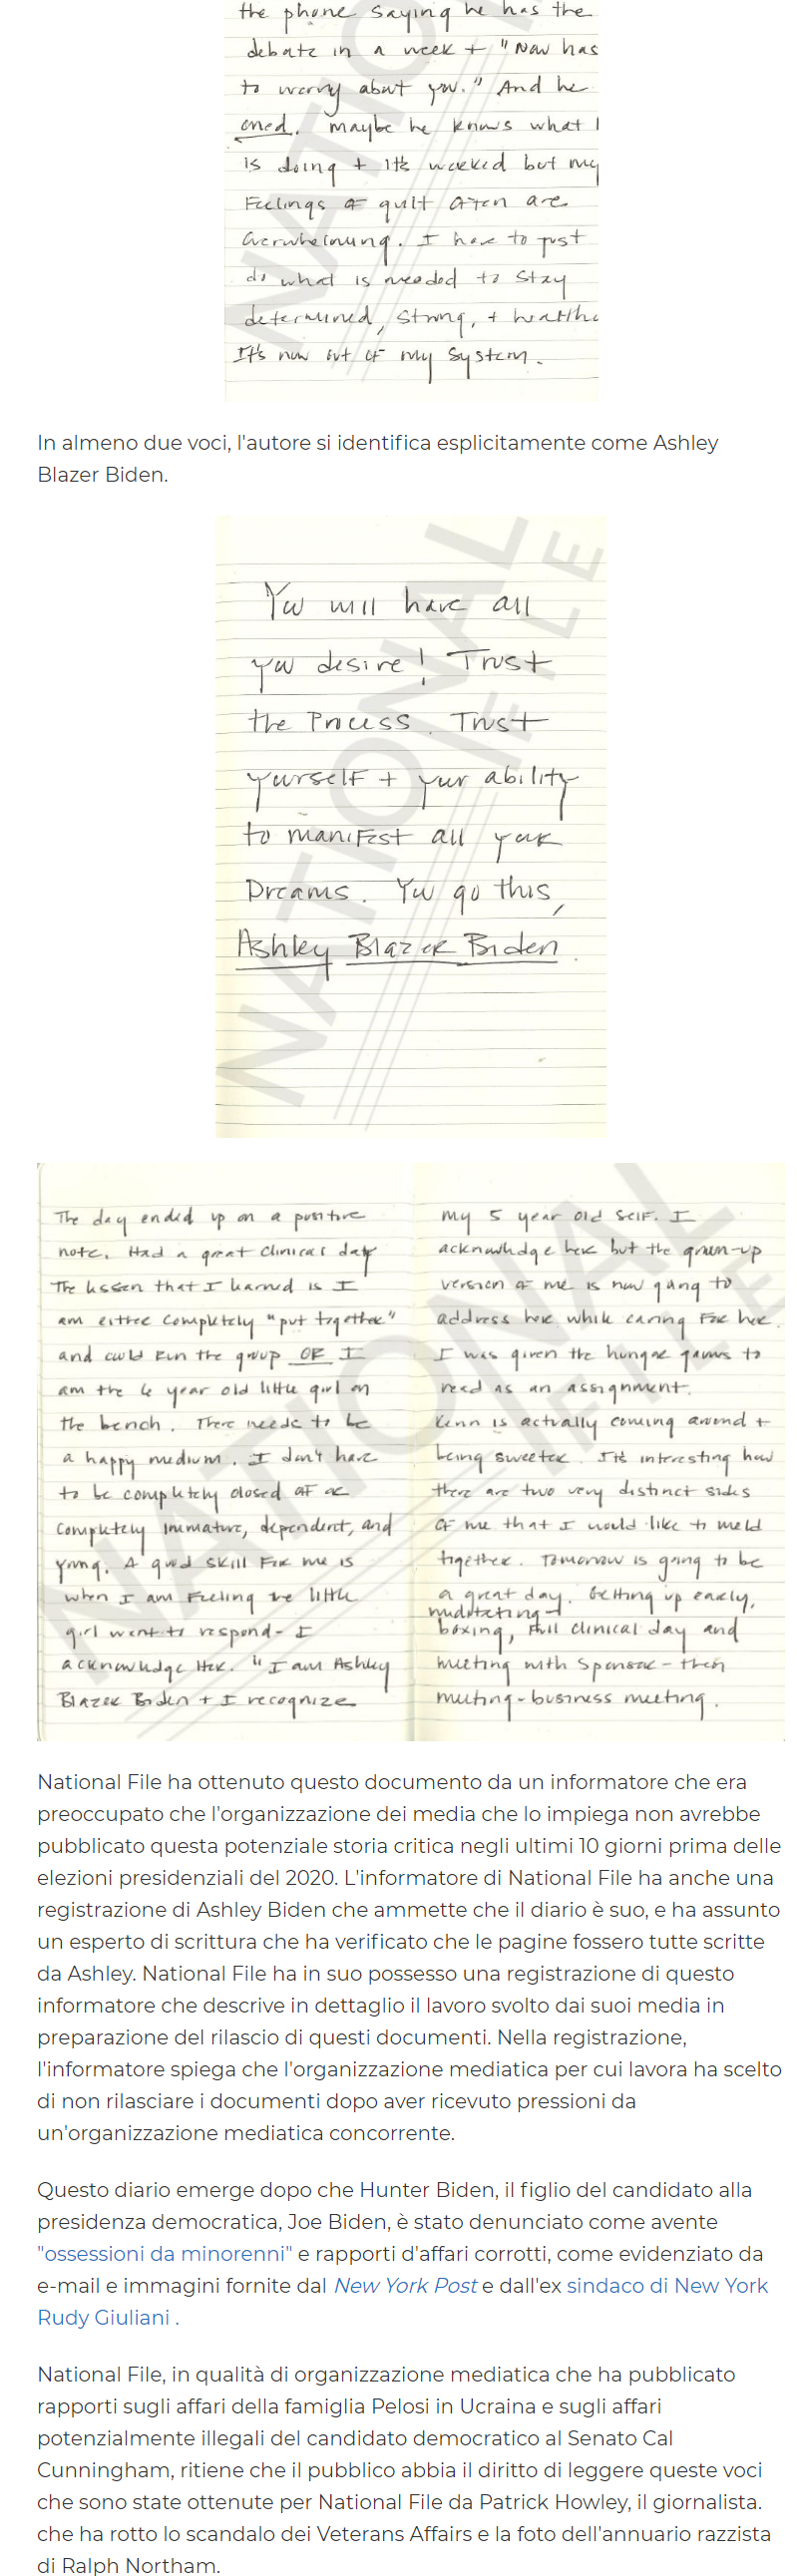 the phone saying he has the
debate in a week + "Now has
to worry abut you." And he
cried. maybe he knows what I
is doing + it's worked but my
Feelings of guilt often are
Overwhelming. I have to just
do what is needed to stay
determined, strong, +
It's now out of my system.
In almeno due voci, l'autore si identifica esplicitamente come Ashley
Blazer Biden.
NATIONAL FILE
You will have all
you desire! Trust
the Process. Trust
yourself + your ability
to manifest all your
Dreams. You go this,
Ashley Blazer Biden.
NATIONAL FILE
The day ended up on a positive
note. Had a great clinical day
The lesson that I learned is I
am either completely "put together"
and could run the group OR I
am the 6 year old little girl on
the bench. There needs to be
a happy medium. I don't have
to be completely closed off or
completely immature, dependent, and
young. A good skill for me is
when I am Feeling the little
girl went to respond - I
acknowledge Her. "I am Ashley
Blazer Biden + I recognize
my 5 year old self. I
acknowledge her but the grown-up
version of me is now going to
address her while caring For her.
I was given the hunger games to
read as an assignment.
is actually coming around +
being sweeter. It's interesting how
there are two very distinct sides
of me that I would like to meld
together. Tomorrow is going to be
a great day. Getting up early,
boxing, full clinical day and
meeting with Sponsor - then
meeting - business meeting.
NATIONAL FILE
National File ha ottenuto questo documento da un informatore che era
preoccupato che l'organizzazione dei media che lo impiega non avrebbe
pubblicato questa potenziale storia critica negli ultimi 10 giorni prima delle
elezioni presidenziali del 2020. L'informatore di National File ha anche una
registrazione di Ashley Biden che ammette che il diario è suo, e ha assunto
un esperto di scrittura che ha verificato che le pagine fossero tutte scritte
da Ashley. National File ha in suo possesso una registrazione di questo
informatore che descrive in dettaglio il lavoro svolto dai suoi media in
preparazione del rilascio di questi documenti. Nella registrazione,
l'informatore spiega che l'organizzazione mediatica per cui lavora ha scelto
di non rilasciare i documenti dopo aver ricevuto pressioni da
un'organizzazione mediatica concorrente.
Questo diario emerge dopo che Hunter Biden, il figlio del candidato alla
presidenza democratica, Joe Biden, è stato denunciato come avente
"ossessioni da minorenni" e rapporti d'affari corrotti, come evidenziato da
e-mail e immagini fornite dal New York Post e dall'ex sindaco di New York
Rudy Giuliani .
National File, in qualità di organizzazione mediatica che ha pubblicato
rapporti sugli affari della famiglia Pelosi in Ucraina e sugli affari
potenzialmente illegali del candidato democratico al Senato Cal
Cunningham, ritiene che il pubblico abbia il diritto di leggere queste voci
che sono state ottenute per National File da Patrick Howley, il giornalista.
che ha rotto lo scandalo dei Veterans Affairs e la foto dell'annuario razzista
di Ralph Northam.